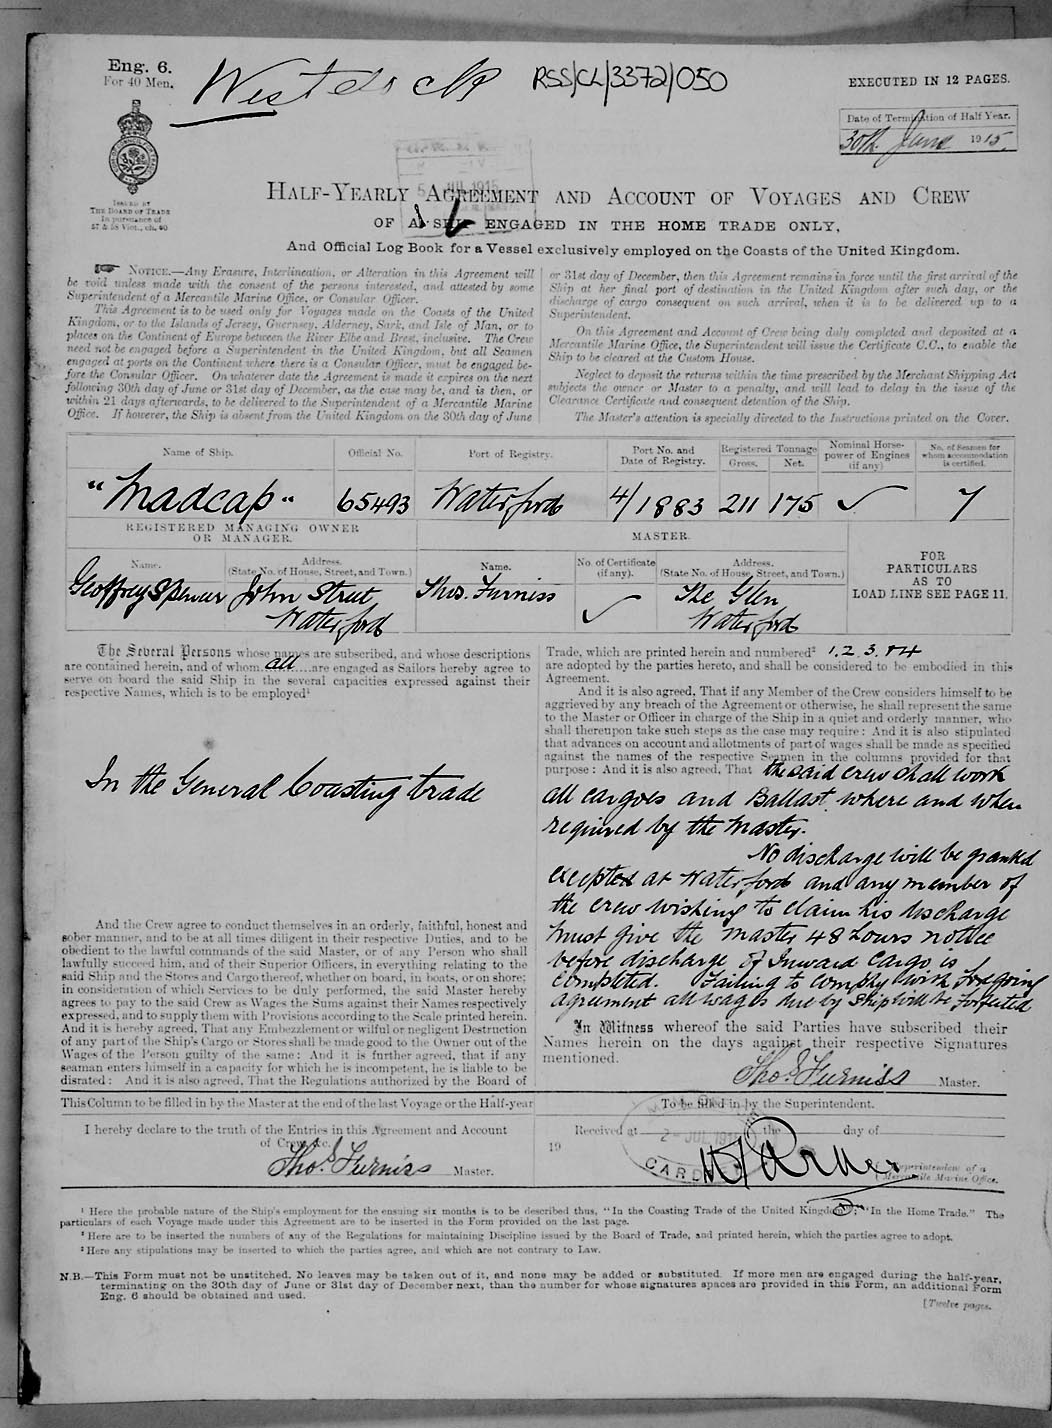 Eng. 6.
For 40 Men.
RSS/CL/3372/050
EXECUTED IN 12 PAGES.
Date of Termination of Half Year.
30th June 1915.
ISSUED BY
THE BOARD OF TRADE
In pursuance of
57 & 58 Vict., ch. 60
JUL 1915
HALF-YEARLY AGREEMENT AND ACCOUNT OF VOYAGES AND CREW
OF A SHIP ENGAGED IN THE HOME TRADE ONLY,
And Official Log Book for a Vessel exclusively employed on the Coasts of the United Kingdom.
NOTICE.—Any Erasure, Interlineation, or Alteration in this Agreement will
be void unless made with the consent of the persons interested, and attested by some
Superintendent of a Mercantile Marine Office, or Consular Officer.
This Agreement is to be used only for Voyages made on the Coasts of the United
Kingdom, or to the Islands of Jersey, Guernsey, Alderney, Sark, and Isle of Man, or to
places on the Continent of Europe between the River Elbe and Brest, inclusive. The Crew
need not be engaged before a Superintendent in the United Kingdom, but all Seamen
engaged at ports on the Continent where there is a Consular Officer, must be engaged be-
fore the Consular Officer. On whatever date the Agreement is made it expires on the next
following 30th day of June or 31st day of December, as the case may be, and is then, or
within 21 days afterwards, to be delivered to the Superintendent of a Mercantile Marine
Office. If however, the Ship is absent from the United Kingdom on the 30th day of June
or 31st day of December, then this Agreement remains in force until the first arrival of the
Ship at her final port of destination in the United Kingdom after such day, or the
discharge of cargo consequent on such arrival, when it is to be delivered up to a
Superintendent.
On this Agreement and Account of Crew being duly completed and deposited at a
Mercantile Marine Office, the Superintendent will issue the Certificate C.C., to enable the
Ship to be cleared at the Custom House.
Neglect to deposit the returns within the time prescribed by the Merchant Shipping Act
subjects the owner or Master to a penalty, and will lead to delay in the issue of the
Clearance Certificate and consequent detention of the Ship.
The Master's attention is specially directed to the Instructions printed on the Cover.
Name of Ship. Official No. Port of Registry. Port No. and Date of Registry. Registered Tonnage Gross. Net. Nominal Horse-power of Engines (if any) No. of Seamen for whom accommodation is certified.
"Madcap" 65493 Waterford 4/1883 211 175 ✓ 7
REGISTERED MANAGING OWNER
OR MANAGER.
MASTER.
Name. Address. (State No. of House, Street, and Town.) Name. No. of Certificate (if any). Address. (State No. of House, Street, and Town.)
FOR
PARTICULARS
AS TO
LOAD LINE SEE PAGE 11.
Geoffrey Spencer John Street Thos. Furniss ✓ The Glen
Waterford Waterford
The Several Persons whose names are subscribed, and whose descriptions
are contained herein, and of whom all are engaged as Sailors hereby agree to
serve on board the said Ship in the several capacities expressed against their
respective Names, which is to be employed¹
In the General Coasting trade
And the Crew agree to conduct themselves in an orderly, faithful, honest and
sober manner, and to be at all times diligent in their respective Duties, and to be
obedient to the lawful commands of the said Master, or of any Person who shall
lawfully succeed him, and of their Superior Officers, in everything relating to the
said Ship and the Stores and Cargo thereof, whether on board, in boats, or on shore;
in consideration of which Services to be duly performed, the said Master hereby
agrees to pay to the said Crew as Wages the Sums against their Names respectively
expressed, and to supply them with Provisions according to the Scale printed herein.
And it is hereby agreed, That any Embezzlement or wilful or negligent Destruction
of any part of the Ship's Cargo or Stores shall be made good to the Owner out of the
Wages of the Person guilty of the same: And it is further agreed, that if any
seaman enters himself in a capacity for which he is incompetent, he is liable to be
disrated: And it is also agreed, That the Regulations authorized by the Board of
Trade, which are printed herein and numbered² 1. 2. 3. & 4
are adopted by the parties hereto, and shall be considered to be embodied in this
Agreement.
And it is also agreed, That if any Member of the Crew considers himself to be
aggrieved by any breach of the Agreement or otherwise, he shall represent the same
to the Master or Officer in charge of the Ship in a quiet and orderly manner, who
shall thereupon take such steps as the case may require: And it is also stipulated
that advances on account and allotments of part of wages shall be made as specified
against the names of the respective Seamen in the columns provided for that
purpose: And it is also agreed, That the said crew shall work
all cargoes and Ballast where and when
required by the Master.
No discharge will be granted
excepted at Waterford and any member of
the crew wishing to claim his discharge
must give the master 48 hours notice
before discharge of Inward Cargo is
completed. Failing to comply with foregoing
agreement all wages due by Ship will be forfeited
In Witness whereof the said Parties have subscribed their
Names herein on the days against their respective Signatures
mentioned.
Thos. S. Furniss Master.
This Column to be filled in by the Master at the end of the last Voyage or the Half-year
I hereby declare to the truth of the Entries in this Agreement and Account
of Crew, &c.
Thos. S. Furniss Master.
To be filled in by the Superintendent.
Received at the day of
19
2 - JUL 191
CARD
Superintendent of a
Mercantile Marine Office.
¹ Here the probable nature of the Ship's employment for the ensuing six months is to be described thus, "In the Coasting Trade of the United Kingdom," "In the Home Trade." The
particulars of each Voyage made under this Agreement are to be inserted in the Form provided on the last page.
² Here are to be inserted the numbers of any of the Regulations for maintaining Discipline issued by the Board of Trade, and printed herein, which the parties agree to adopt.
³ Here any stipulations may be inserted to which the parties agree, and which are not contrary to Law.
N.B.—This Form must not be unstitched. No leaves may be taken out of it, and none may be added or substituted. If more men are engaged during the half-year,
terminating on the 30th day of June or 31st day of December next, than the number for whose signatures spaces are provided in this Form, an additional Form
Eng. 6 should be obtained and used.
[Twelve pages.